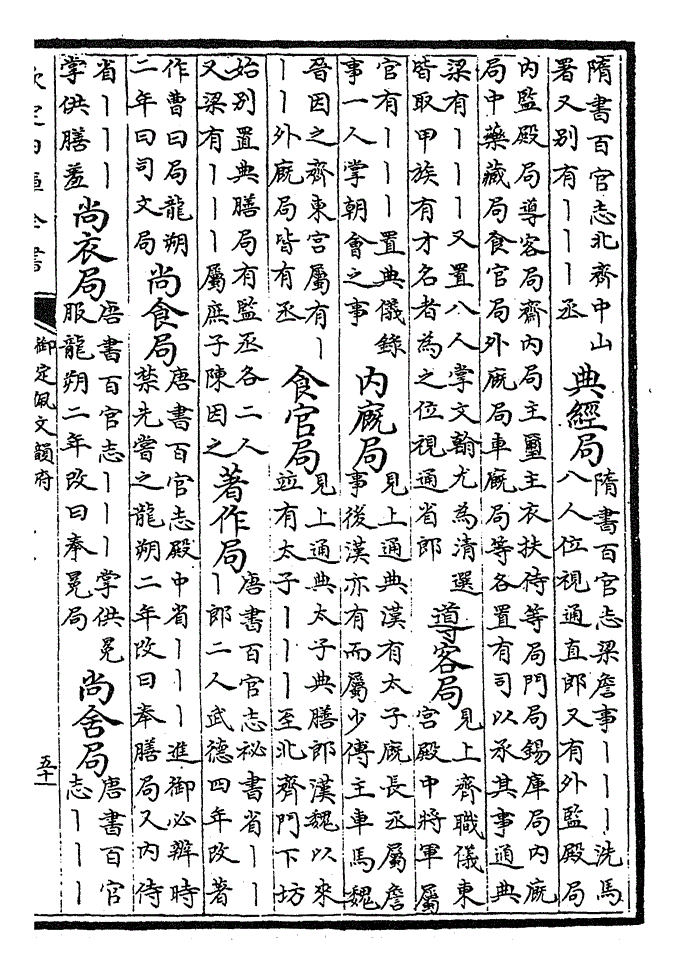 隋書百官志北齊中山
署又別有丨丨丨丞
典經局
隋書百官志梁詹事丨丨丨洗馬
八人位視通直郎又有外監殿局
內監殿局導客局齋內局主璽主衣扶侍等局門局錫庫局內廐
局中藥藏局食官局外廐局車廐局等各置有司以承其事通典
梁有丨丨丨又置八人掌文翰尤為清選
皆取甲族有才名者為之位視通省郎
導客局
見上齊職儀東
宮殿中將軍屬
官有丨丨丨置典儀錄
事一人掌朝會之事
內廐局
見上通典漢有太子廐長丞屬詹
事後漢亦有而屬少傅主車馬魏
晉因之齊東宮屬有丨
丨丨外廐局皆有丞
食官局
見上通典太子典膳郎漢魏以來
竝有太子丨丨丨至北齊門下坊
始別置典膳局有監丞各二人
又梁有丨丨丨屬庶子陳因之
著作局
唐書百官志祕書省丨丨
丨郎二人武德四年改著
作曹曰局龍朔
二年曰司文局
尚食局
唐書百官志殿中省丨丨丨進御必辨時
禁先嘗之龍朔二年改曰奉膳局又內侍
省丨丨丨
掌供膳羞
尚衣局
唐書百官志丨丨丨掌供冕
服龍朔二年改曰奉冕局
尚舍局
唐書百官
志丨丨丨
欽定四庫全書
御定佩文韻府
五十